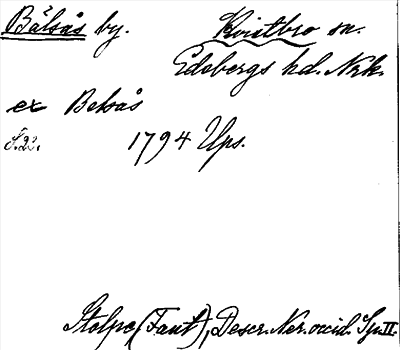 Bålsås by. Kvistbro sn.
Edsbergs hd. Nrk.
ex Belsås
S. 22. 1794 Ups.
Stolpe (Fant), Descr. Ner. occid. Syn. II.